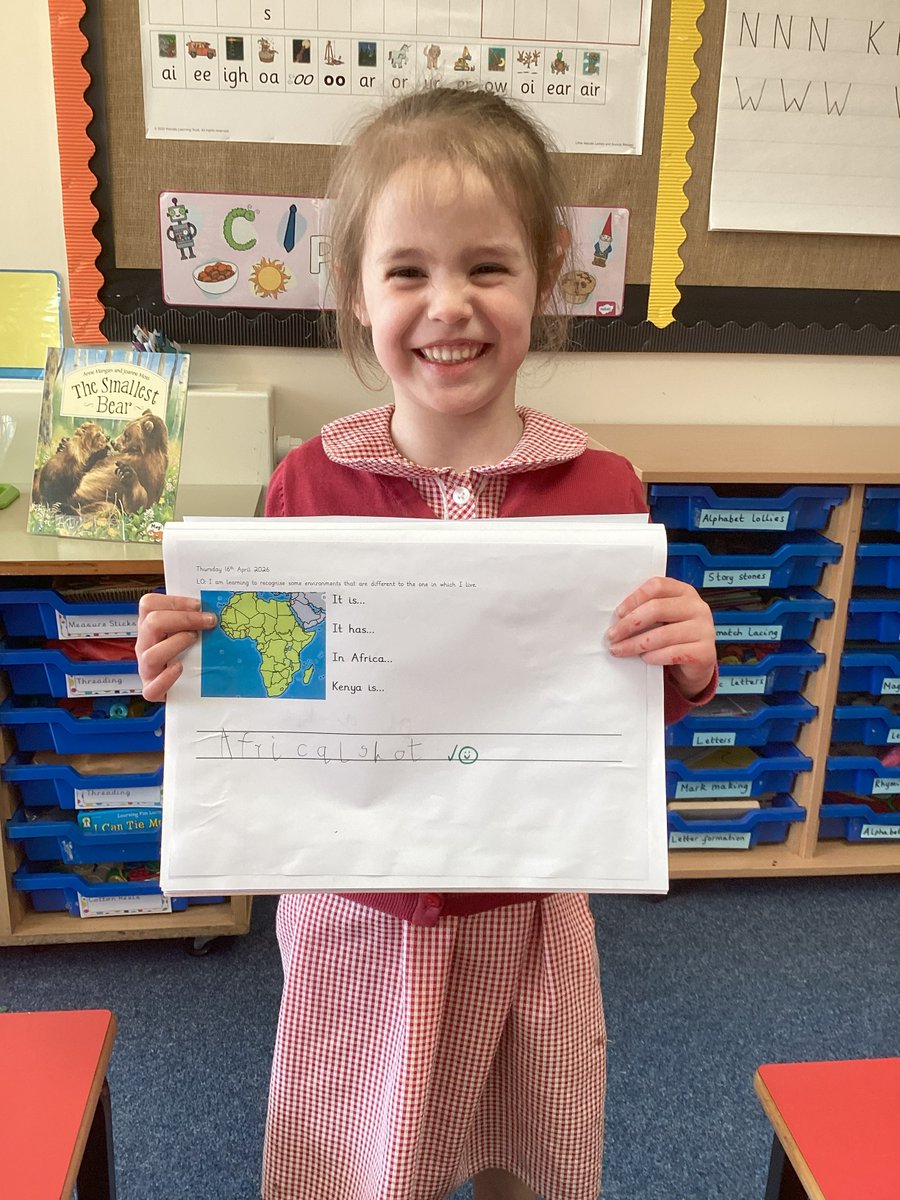 s
ai ee igh oa oo oo ar or ur er ow oi ear air
N N N K
W W W
Anne Mangan and Joanne Moss
The Smallest
Bear
Alphabet lollies
Story stones
match lacing
Letters
Mark making
Letter formation
Measure Sticks
Threading
Threading
Learning Fun
I Can Tie
Alphabet
Thursday 16th April 2026
LO: I am learning to recognise some environments that are different to the one in which I live.
It is...
It has...
In Africa...
Kenya is...
Africalshot